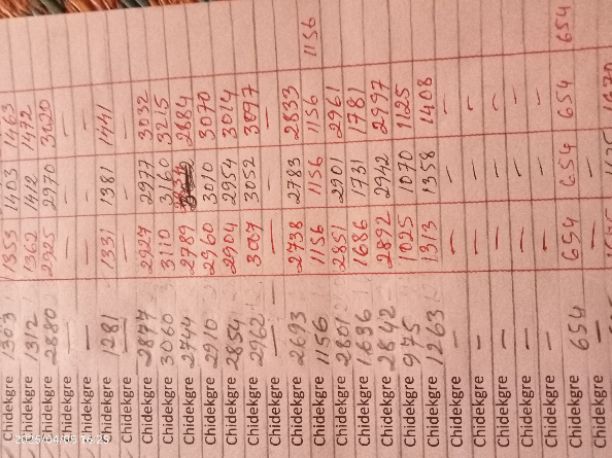 Chidekgre 1303 1353 1403 1463
Chidekgre 1312 1362 1412 1472
Chidekgre 2880 2925 2970 3020
Chidekgre — — — —
Chidekgre — — — —
Chidekgre 1281 1331 1381 1441
Chidekgre — — — —
Chidekgre 2877 2927 2977 3032
Chidekgre 3060 3110 3160 3215
Chidekgre 2744 2789 2884
Chidekgre 2910 2960 3010 3070
Chidekgre 2854 2904 2954 3014
Chidekgre 2962 3007 3052 3097
Chidekgre — — — —
Chidekgre 2693 2738 2783 2833
Chidekgre 1156 1156 1156 1156 1156
Chidekgre 2801 2851 2901 2961
Chidekgre 1636 1686 1731 1781
Chidekgre 2842 2892 2942 2997
Chidekgre 975 1025 1070 1125
Chidekgre 1263 1313 1358 1408
Chidekgre — — — —
Chidekgre — — — —
Chidekgre — — — —
Chidekgre — — — —
Chidekgre — — — —
Chidekgre 654 654 654 654 654
Chidekgre — —